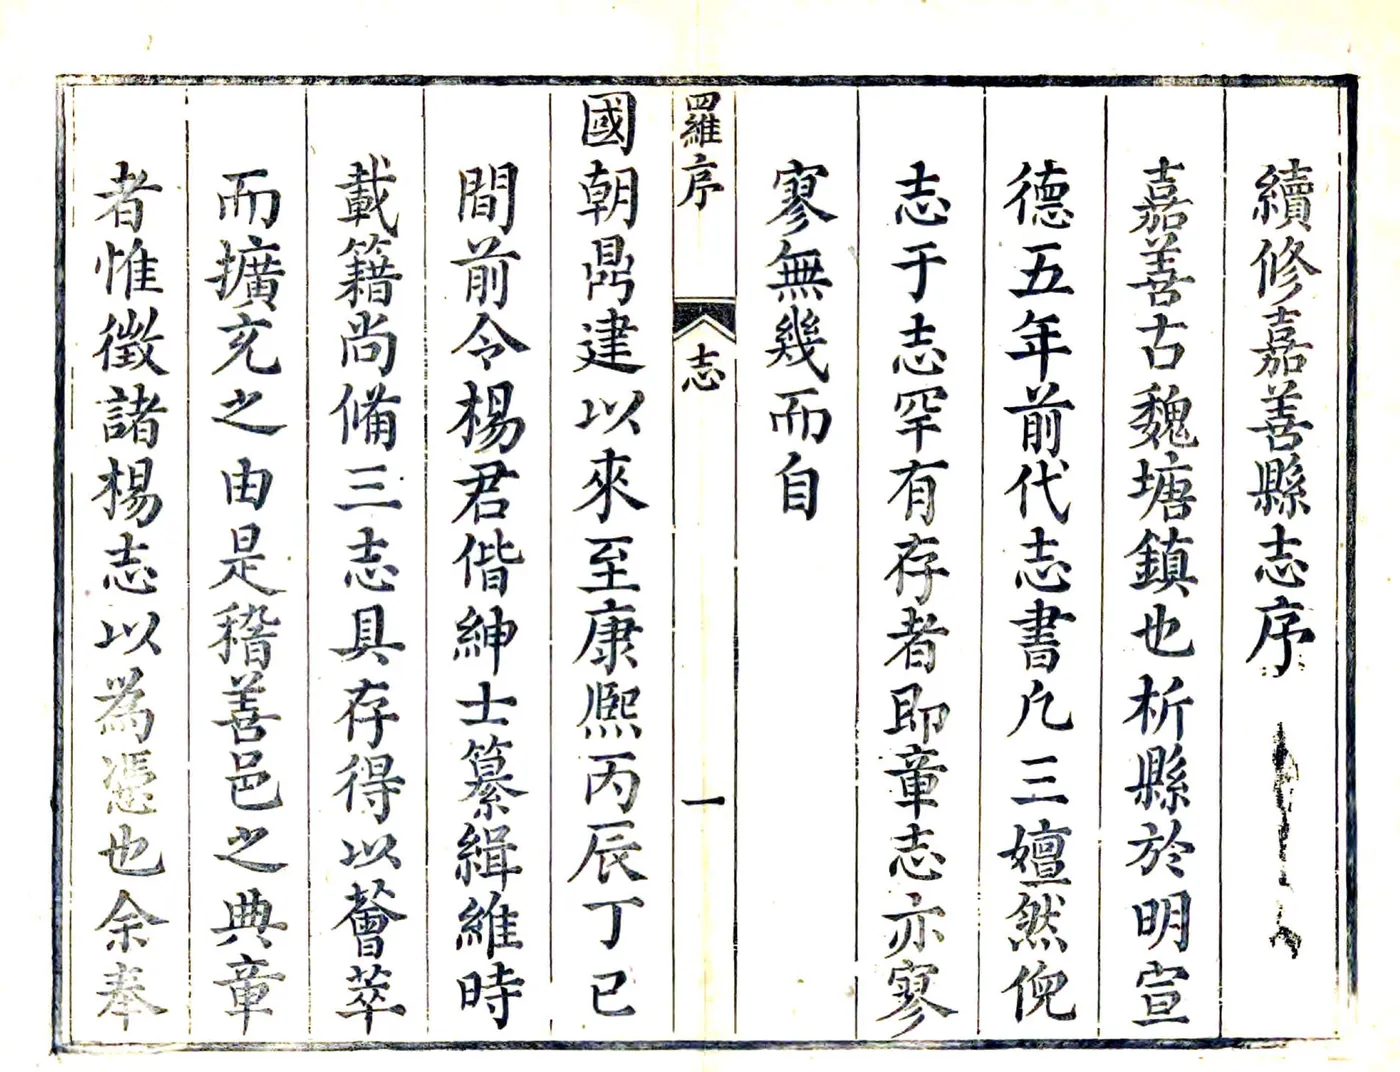 續修嘉善縣志序
嘉善古魏塘鎮也析縣於明宣
德五年前代志書凡三嬗然俛
志于志罕有存者即章志亦寥
寥無幾而自
羅序
志
一
國朝鼎建以來至康熙丙辰丁巳
間前令楊君偕紳士纂緝維時
載籍尚備三志具存得以薈萃
而擴充之由是稽善邑之典章
者惟徵諸楊志以為憑也余奉